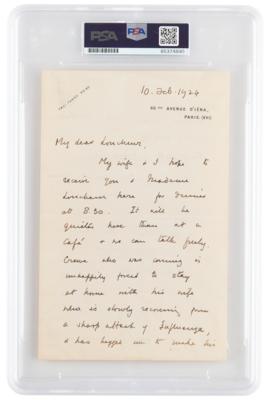 PSA PSA
10. Feb. 1924
60 BIS AVENUE D'IÉNA,
PARIS (XVI)
My dear Loucheur,
My wife & I hope to
receive you & Madame
Loucheur here for dinner
at 8.30. It will be
quieter here than at a
café & we can talk freely.
Crowe who was coming is
unhappily forced to stay
at home with his wife
who is slowly recovering from
a sharp attack of Influenza,
& has begged me to make his